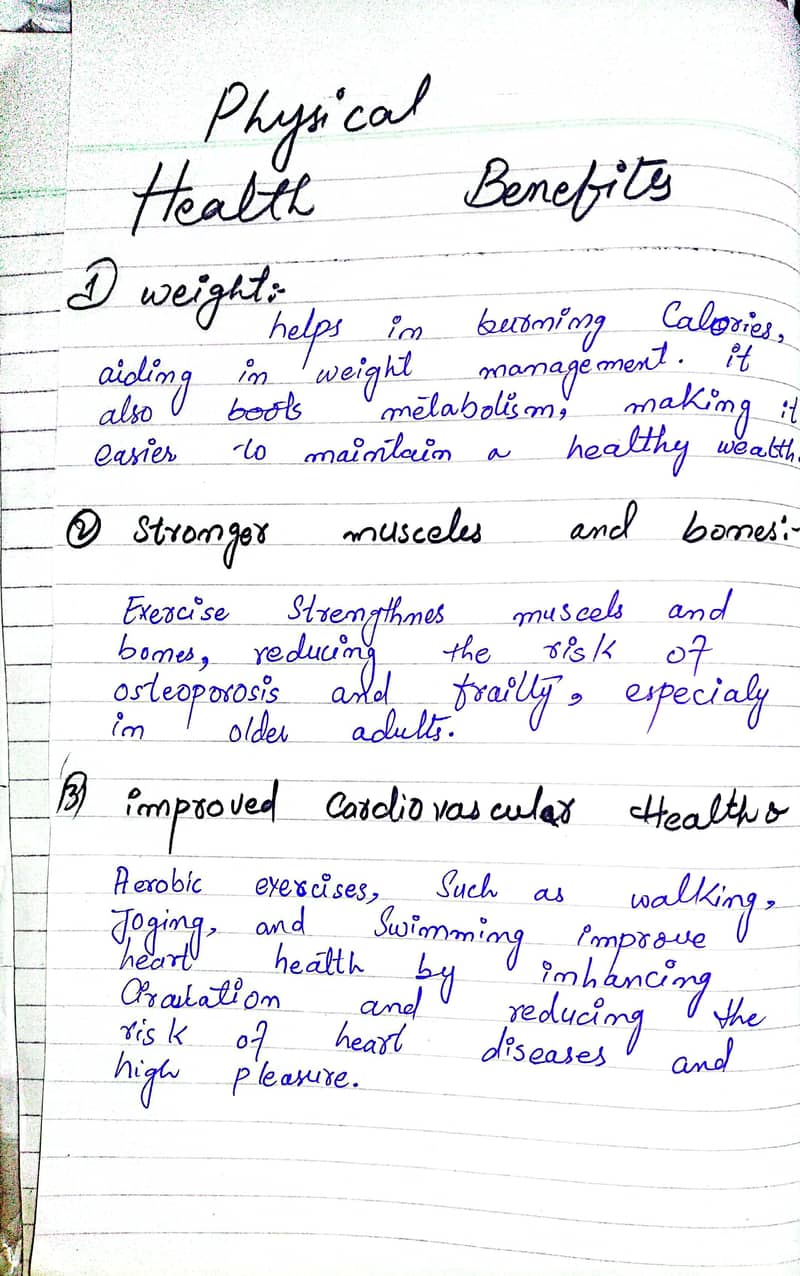 Physical
Health Benefits
1) weight:-
helps in burning Calories,
aiding in weight management. it
also boots metabolism, making it
easier to maintain a healthy wealth.
2) Stronger musceles and bones:-
Exercise Strengthnes muscels and
bones, reducing the risk of
osteoporosis and frailty, especialy
in older adults.
3) improved Cardiovascular Health
Aerobic exercises, Such as walking,
Joging, and Swimming improve
heart health by inhancing
and reducing the
risk of heart diseases and
high pleasure.